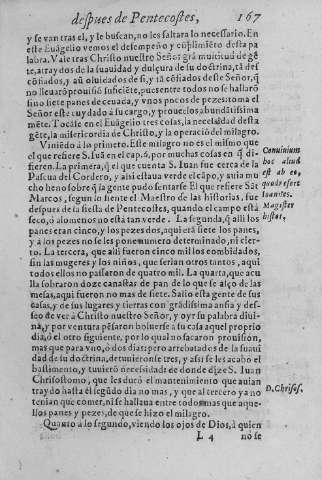 despues de Pentecostes, 167
y se van tras el, y le buscan, no les faltara lo necessario. En
este Euãgelio vemos el desempeño y cũplimiẽto desta pa
labra. Vale tras Christo nuestro Señor grã multitud de gẽ
te, atraydos de la suauidad y dulçura de su doctrina, tã des
cõfiados, que no
lleuarõ prouisiõ suficiẽte, pues entre todos no se hallarõ
sino siete panes de ceuada, y vnos pocos de pezes: toma el
Señor este cuydado a su cargo, y prouelos abundãtissima
mẽte. Tocãse en el Euãgelio tres cosas, la necessidad desta
gẽte, la misericordia de Christo, y la operaciõ del milagro.
Viniẽdo a lo primero. Este milagro no es el mismo que
el que refiere S. Iuã en el cap. 6. por muchas cosas en q̃ di-
fieren. La primera, q̃ el que cuenta S. Iuan fue cerca de la
Pascua del Cordero, y assi estaua verde el cãpo, y auia mu
cho heno sobre q̃ la gente pudo sentarse. El que refiere Sã
Marcos, segun lo siente el Maestro de las historias, fue
despues de la fiesta de Pentecostes, quando el campo està
seco, ó alomenos no està tan verde. La segunda, q̃ alli los
panes eran cinco, y los pezes dos, aqui erã siete los panes,
y á los pezes no se les pone numero determinado, ni cier-
to. La tercera, que alli fueron cinco mil los combidados,
sin las mugeres y los niños, que serian otros tantos, aqui
todos ellos no passaron de quatro mil. La quarta, que acu
lla sobraron doze canastas de pan de lo que se alço de las
mesas, aqui fueron no mas de siete. Salio esta gente de sus
casas, y de sus lugares y tierras con grãdissima ansia y des-
seo de ver à Christo nuestro Señor, y oyr su palabra diui-
na, y por ventura pẽsaron boluerse a su casa aquel proprio
dia, ó el otro siguiente, por lo qual no sacaron prouision,
mas que para vno, ó dos dias: pero arrebatados de la suaui
dad de su doctrina, detuuierõse tres, y assi se les acabó el
bastimento, y tuuierõ necessidad: de donde dize S. Iuan
Chrisostomo, que les duró el mantenimiento que auian
traydo hasta el segũdo dia no mas, y que al tercero ya no
tenian que comer, ni se hallaua entre todos mas que aque-
llos panes y pezes, de que se hizo el milagro.
Quanto a lo segundo, viendo los ojos de Dios, à quien
L 4 no se
hoc aliud
est ab eo,
quod refert
Ioannes.
Magister
histor.
D. Chrisos.